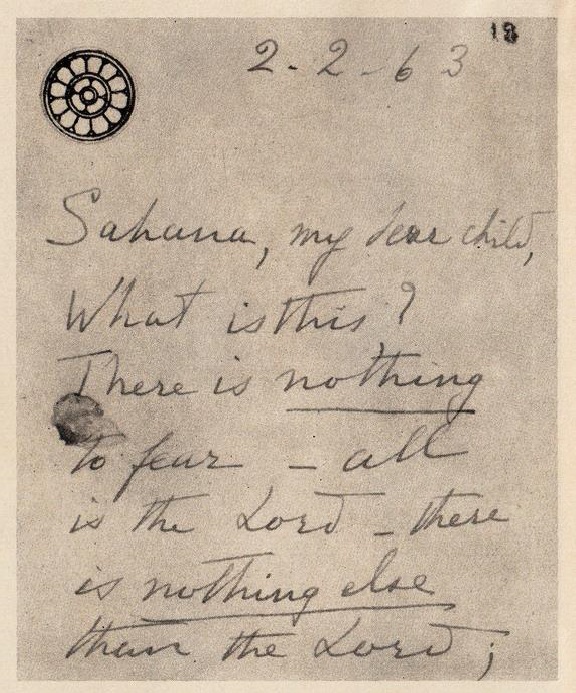 2-2-63
Sahana, my dear child,
What is this?
There is nothing
to fear – all
is the Lord – there
is nothing else
than the Lord;